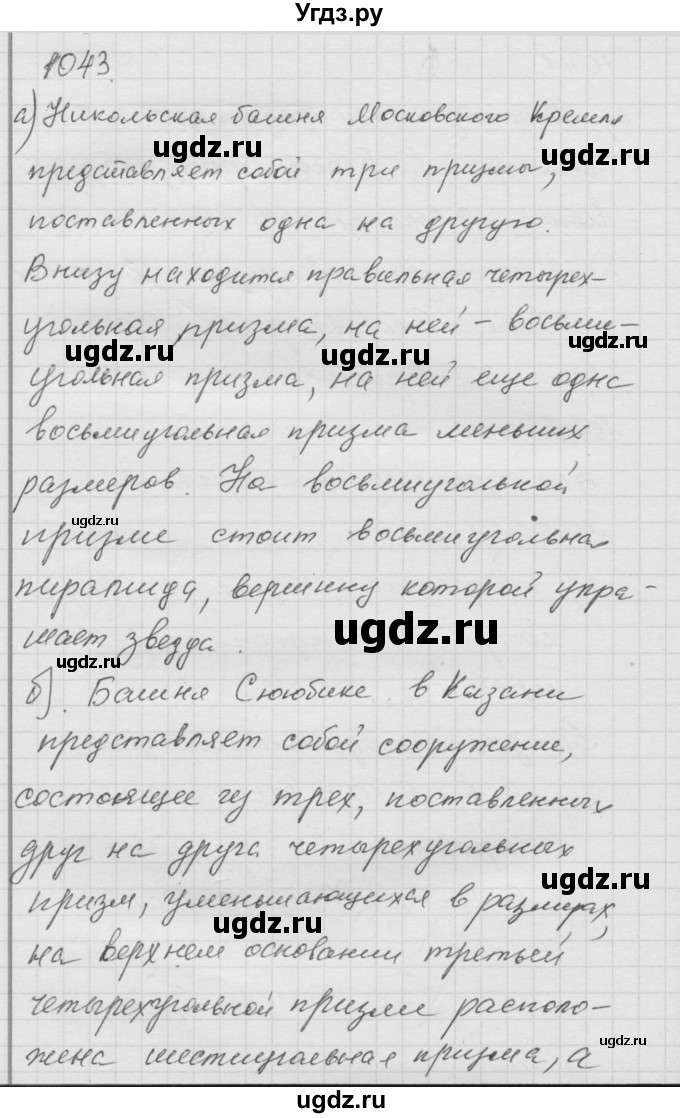 Угдз.ру
1043.
а) Никольская башня Московского Кремля
ugdz.ru ugdz.ru
представляет собой три призмы,
поставленных одна на другую.
Внизу находится правильная четырех-
угольная призма, на ней - восьми-
ugdz.ru ugdz.ru ugdz.ru
угольная призма, на ней еще одна
восьмиугольная призма меньших
размеров. На восьмиугольной
ugdz.ru
призме стоит восьмиугольная
пирамида, вершину которой укра-
ugdz.ru
шает звезда.
ugdz.ru
б). Башня Сююбике в Казани
представляет собой сооружение,
состоящее из трех, поставленных
друг на друга четырехугольных
ugdz.ru
призм, уменьшающихся в размерах,
ugdz.ru
на верхнем основании третьей
четырехугольной призмы располо-
ugdz.ru
жена шестиугольная призма, а
ugdz.ru